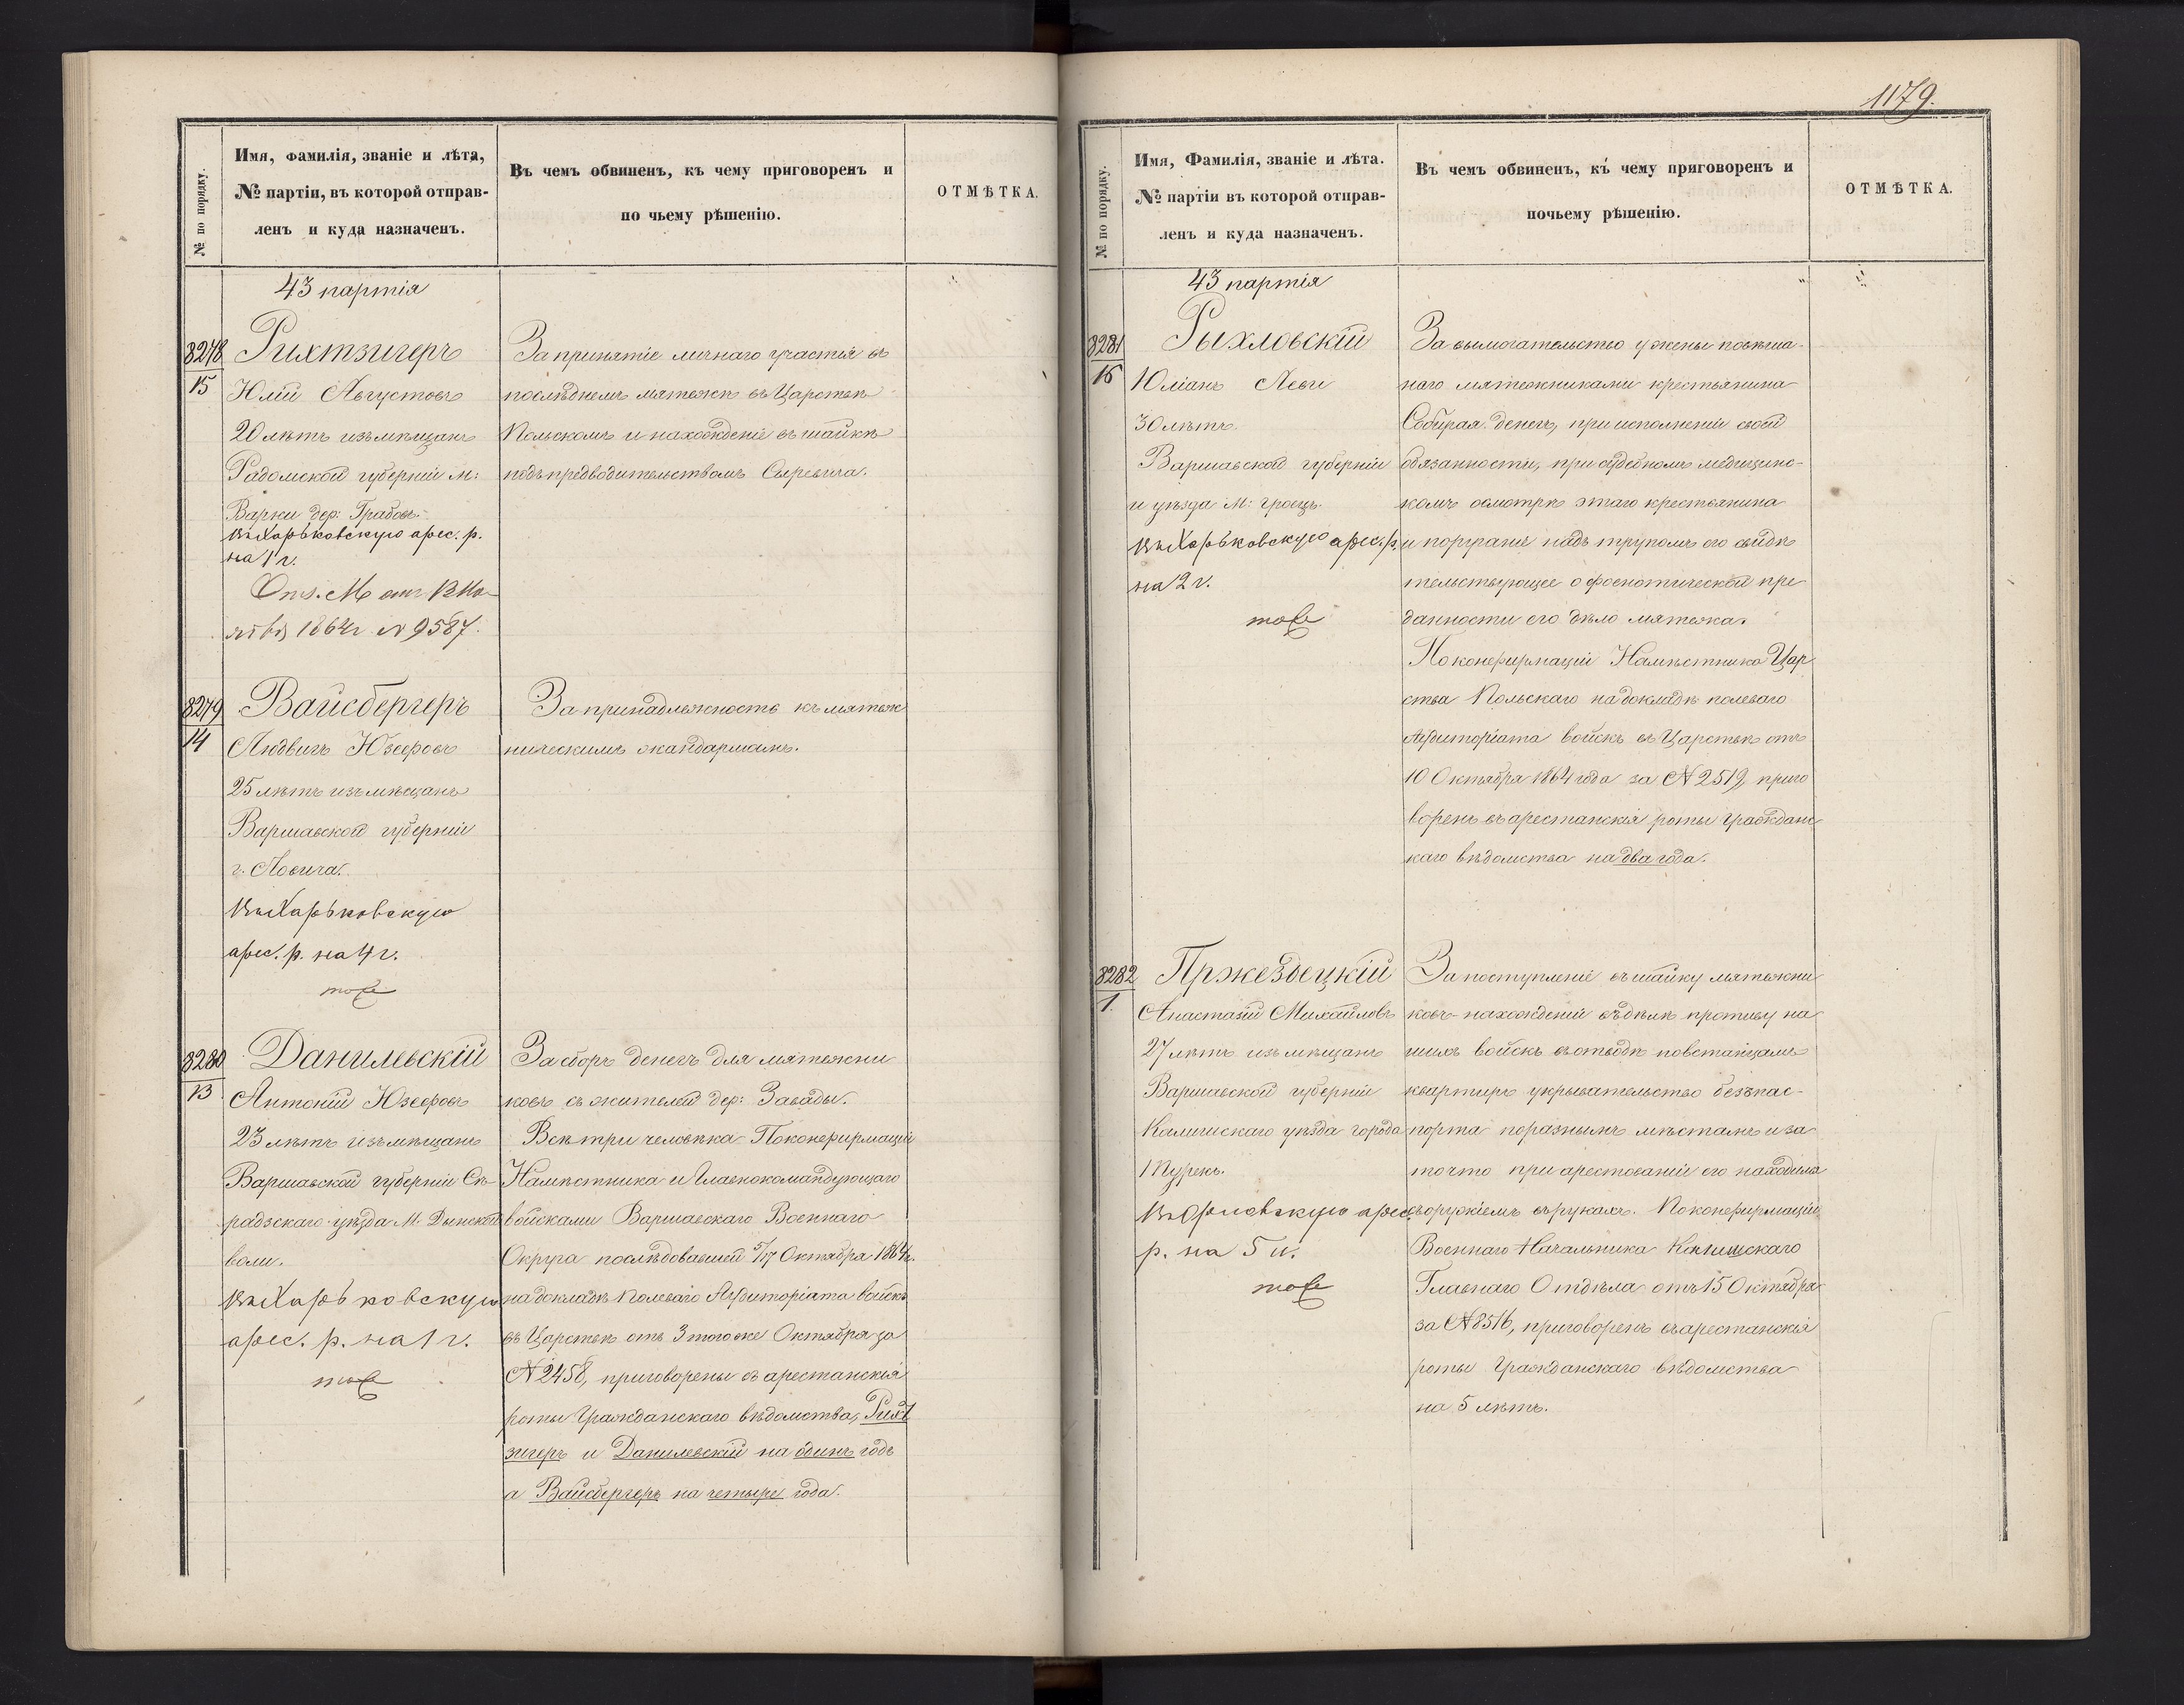 1179.
№ по порядку.
Имя, Фамилія, званіе и лѣта,
№ партіи, въ которой отправ-
ленъ и куда назначенъ.
Въ чемъ обвиненъ, къ чему приговоренъ и
по чьему рѣшенію.
ОТМѢТКА.
43 партія
8278
15
Рихтзигеръ
Юлій Августовъ
20 лѣтъ изъ мѣщанъ
Радомской губерніи м:
Варки дер: Грабовъ.
Въ Харьковскую арес. р.
на 1 г.
1864 г. N 9587.
За принятіе личнаго участія въ
послѣднемъ мятежѣ въ Царствѣ
Польскомъ и нахожденіе въ шайкѣ
подъ предводительствомъ Сыревича.
8279
14
Вайсбергеръ
Людвигъ Юзефовъ
25 лѣтъ изъ мѣщанъ
Варшавской губерніи
г. Ловича.
Въ Харьковскую
арес. р. на 4 г.
тоже
За принадлежность къ мятеж
ническимъ жандармамъ.
8280
13
Данилевскій
Антоній Юзефовъ
23 лѣтъ изъ мѣщанъ
Варшавской губерніи Сѣ-
радзскаго уѣзда м.
воли.
Въ Харьковскую
арес. р. на 1 г.
тоже
За сборъ денегъ для мятежни
ковъ съ жителей дер: Завады.
Всѣ три человѣка По конфирмаціи
Намѣстника и Главнокомандующаго
войсками Варшавскаго Военнаго
Округа послѣдовавшей 5/17 Октября 1864 г.
на докладѣ Полеваго Аудиторіата войскъ
въ Царствѣ отъ 3 того же Октября за
N 2458, приговорены въ арестанскія
роты Гражданскаго вѣдомства, Рихт
зигеръ и Данилевскій на одинъ годъ
а Вайсбергеръ на четыре года.
№ по порядку.
Имя, Фамилія, званіе и лѣта.
№ партіи въ которой отправ-
ленъ и куда назначенъ.
Въ чемъ обвиненъ, къ чему приговоренъ и
почьему рѣшенію.
ОТМѢТКА.
43 партія
8281
16
Рыхловскій
Юліанъ
30 лѣтъ.
Варшавской губерніи
и уѣзда м: Гроецъ.
Въ Харьковскую арес. р.
на 2 г.
тоже
За вымогательство у жены повѣша-
наго мятежниками крестьянина
Собирая денегъ, при исполненіи своей
обязанности, при судебномъ медицинс-
комъ осмотрѣ этаго крестьянина
и поруганіе надъ трупомъ его свидѣ
тельствующее о фанатической пре
данности его дѣло мятежа.
По конфирмаціи Намѣстника Цар
ства Польскаго на докладѣ полеваго
Аудиторіата войскъ въ Царствѣ отъ
10 Октября 1864 года за N 2519, приго
воренъ въ арестанскія роты Гражданс
каго вѣдомства на два года.
8282
1.
Пржездецкій
Анастазій Михайловъ
27 лѣтъ изъ мѣщанъ
Варшавской губерніи
Калишскаго уѣзда города
Въ Орловскую арес.
р. на 5 л.
тоже
За поступленіе въ шайку мятежни
ковъ нахожденіи въ дѣлѣ противу на
шихъ войскъ въ отводѣ повстанцамъ
квартиръ укрывательство безъ пас-
порта по разнымъ мѣстамъ и за
то что при арестованіи его находился
съ оружіемъ въ рукахъ. По конфирмаціи
Военнаго Начальника Калишскаго
Главнаго Отдѣла отъ 15 Октября
за N 8516, приговоренъ въ арестанскія
роты Гражданскаго вѣдомства
на 5 лѣтъ.